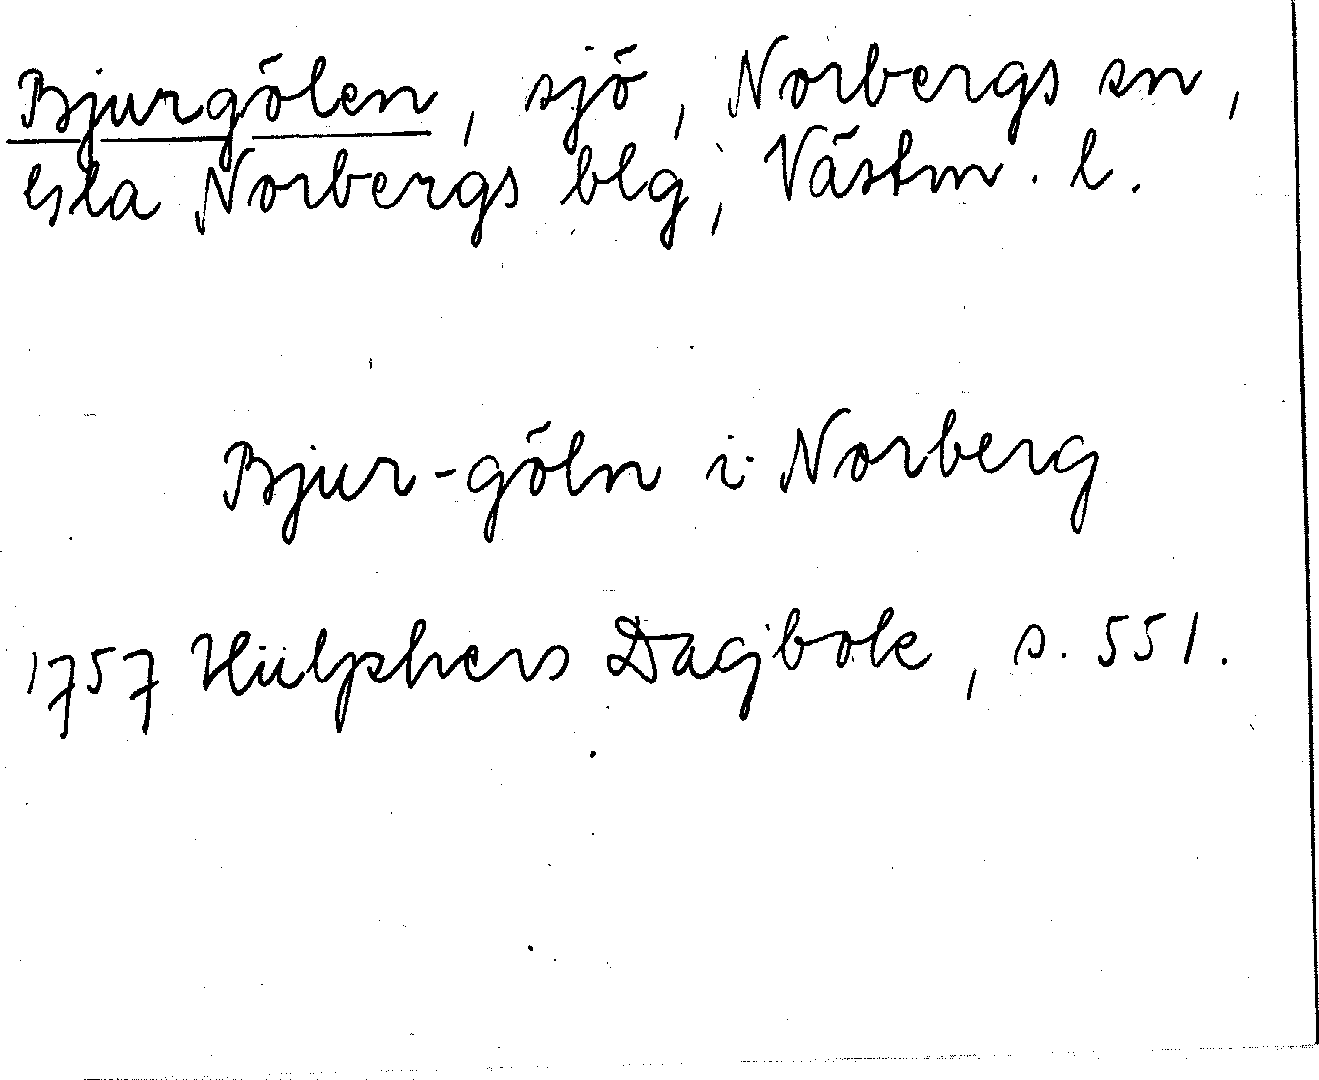 Bjurgölen, sjö, Norbergs sn,
Gla Norbergs blg, Västm. l.
Bjur-göln i Norberg
1757 Hülphers Dagbok, s. 551.